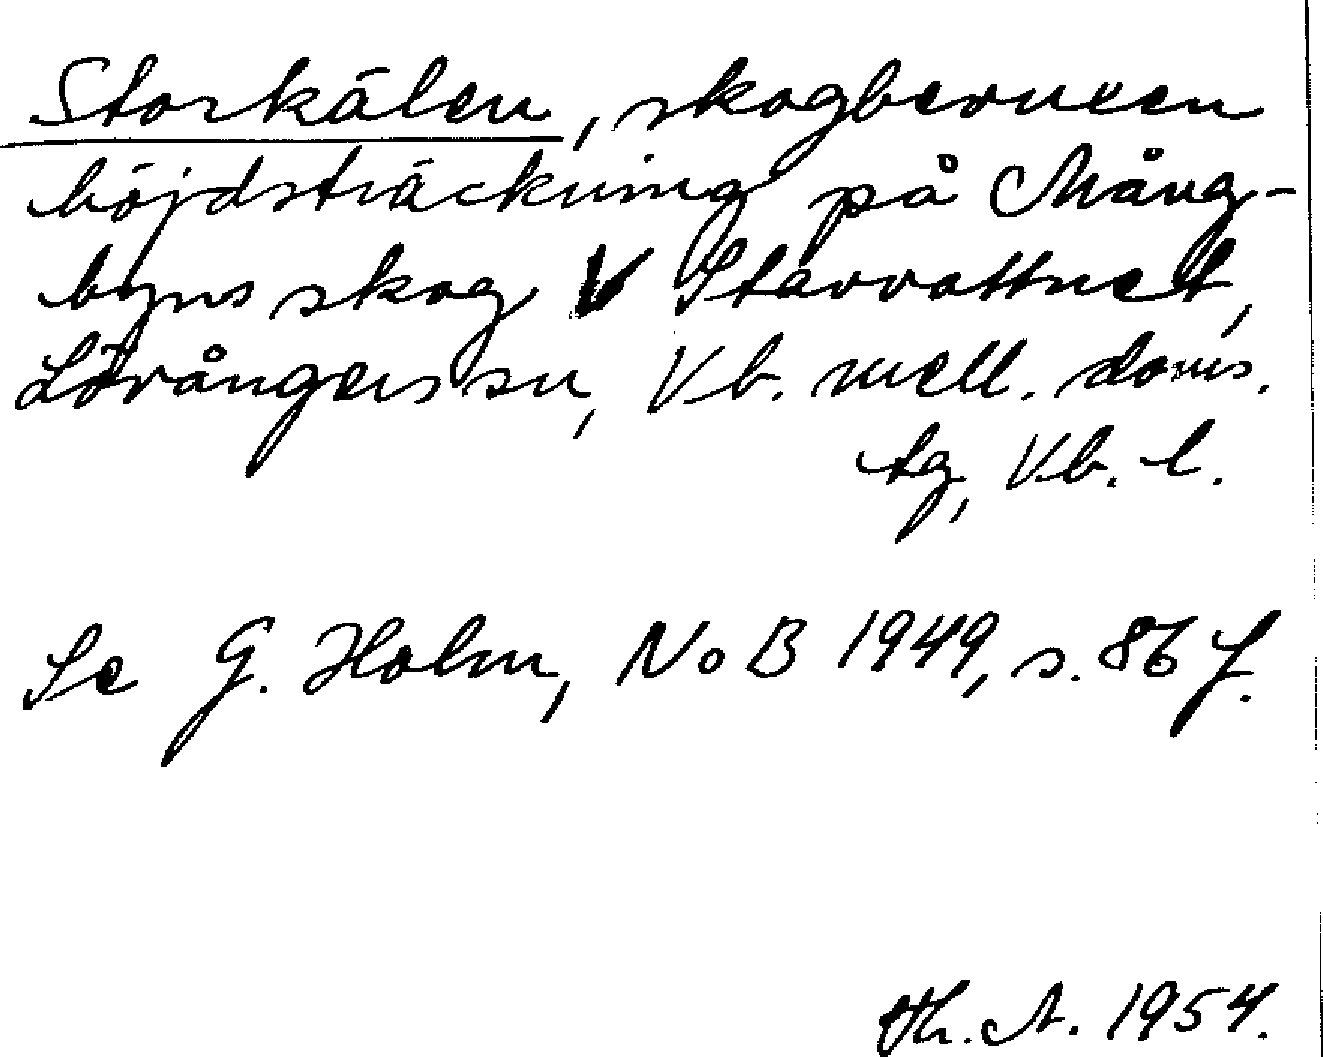 Storkälen, skogbevuxen
höjdsträckning på Mång-
byns skog V Stavvattnet,
Lövångers sn, Vb. mell. doms.
tg, Vb. l.
Se G. Holm, NoB 1949, s. 86 f.
Th. A. 1954.